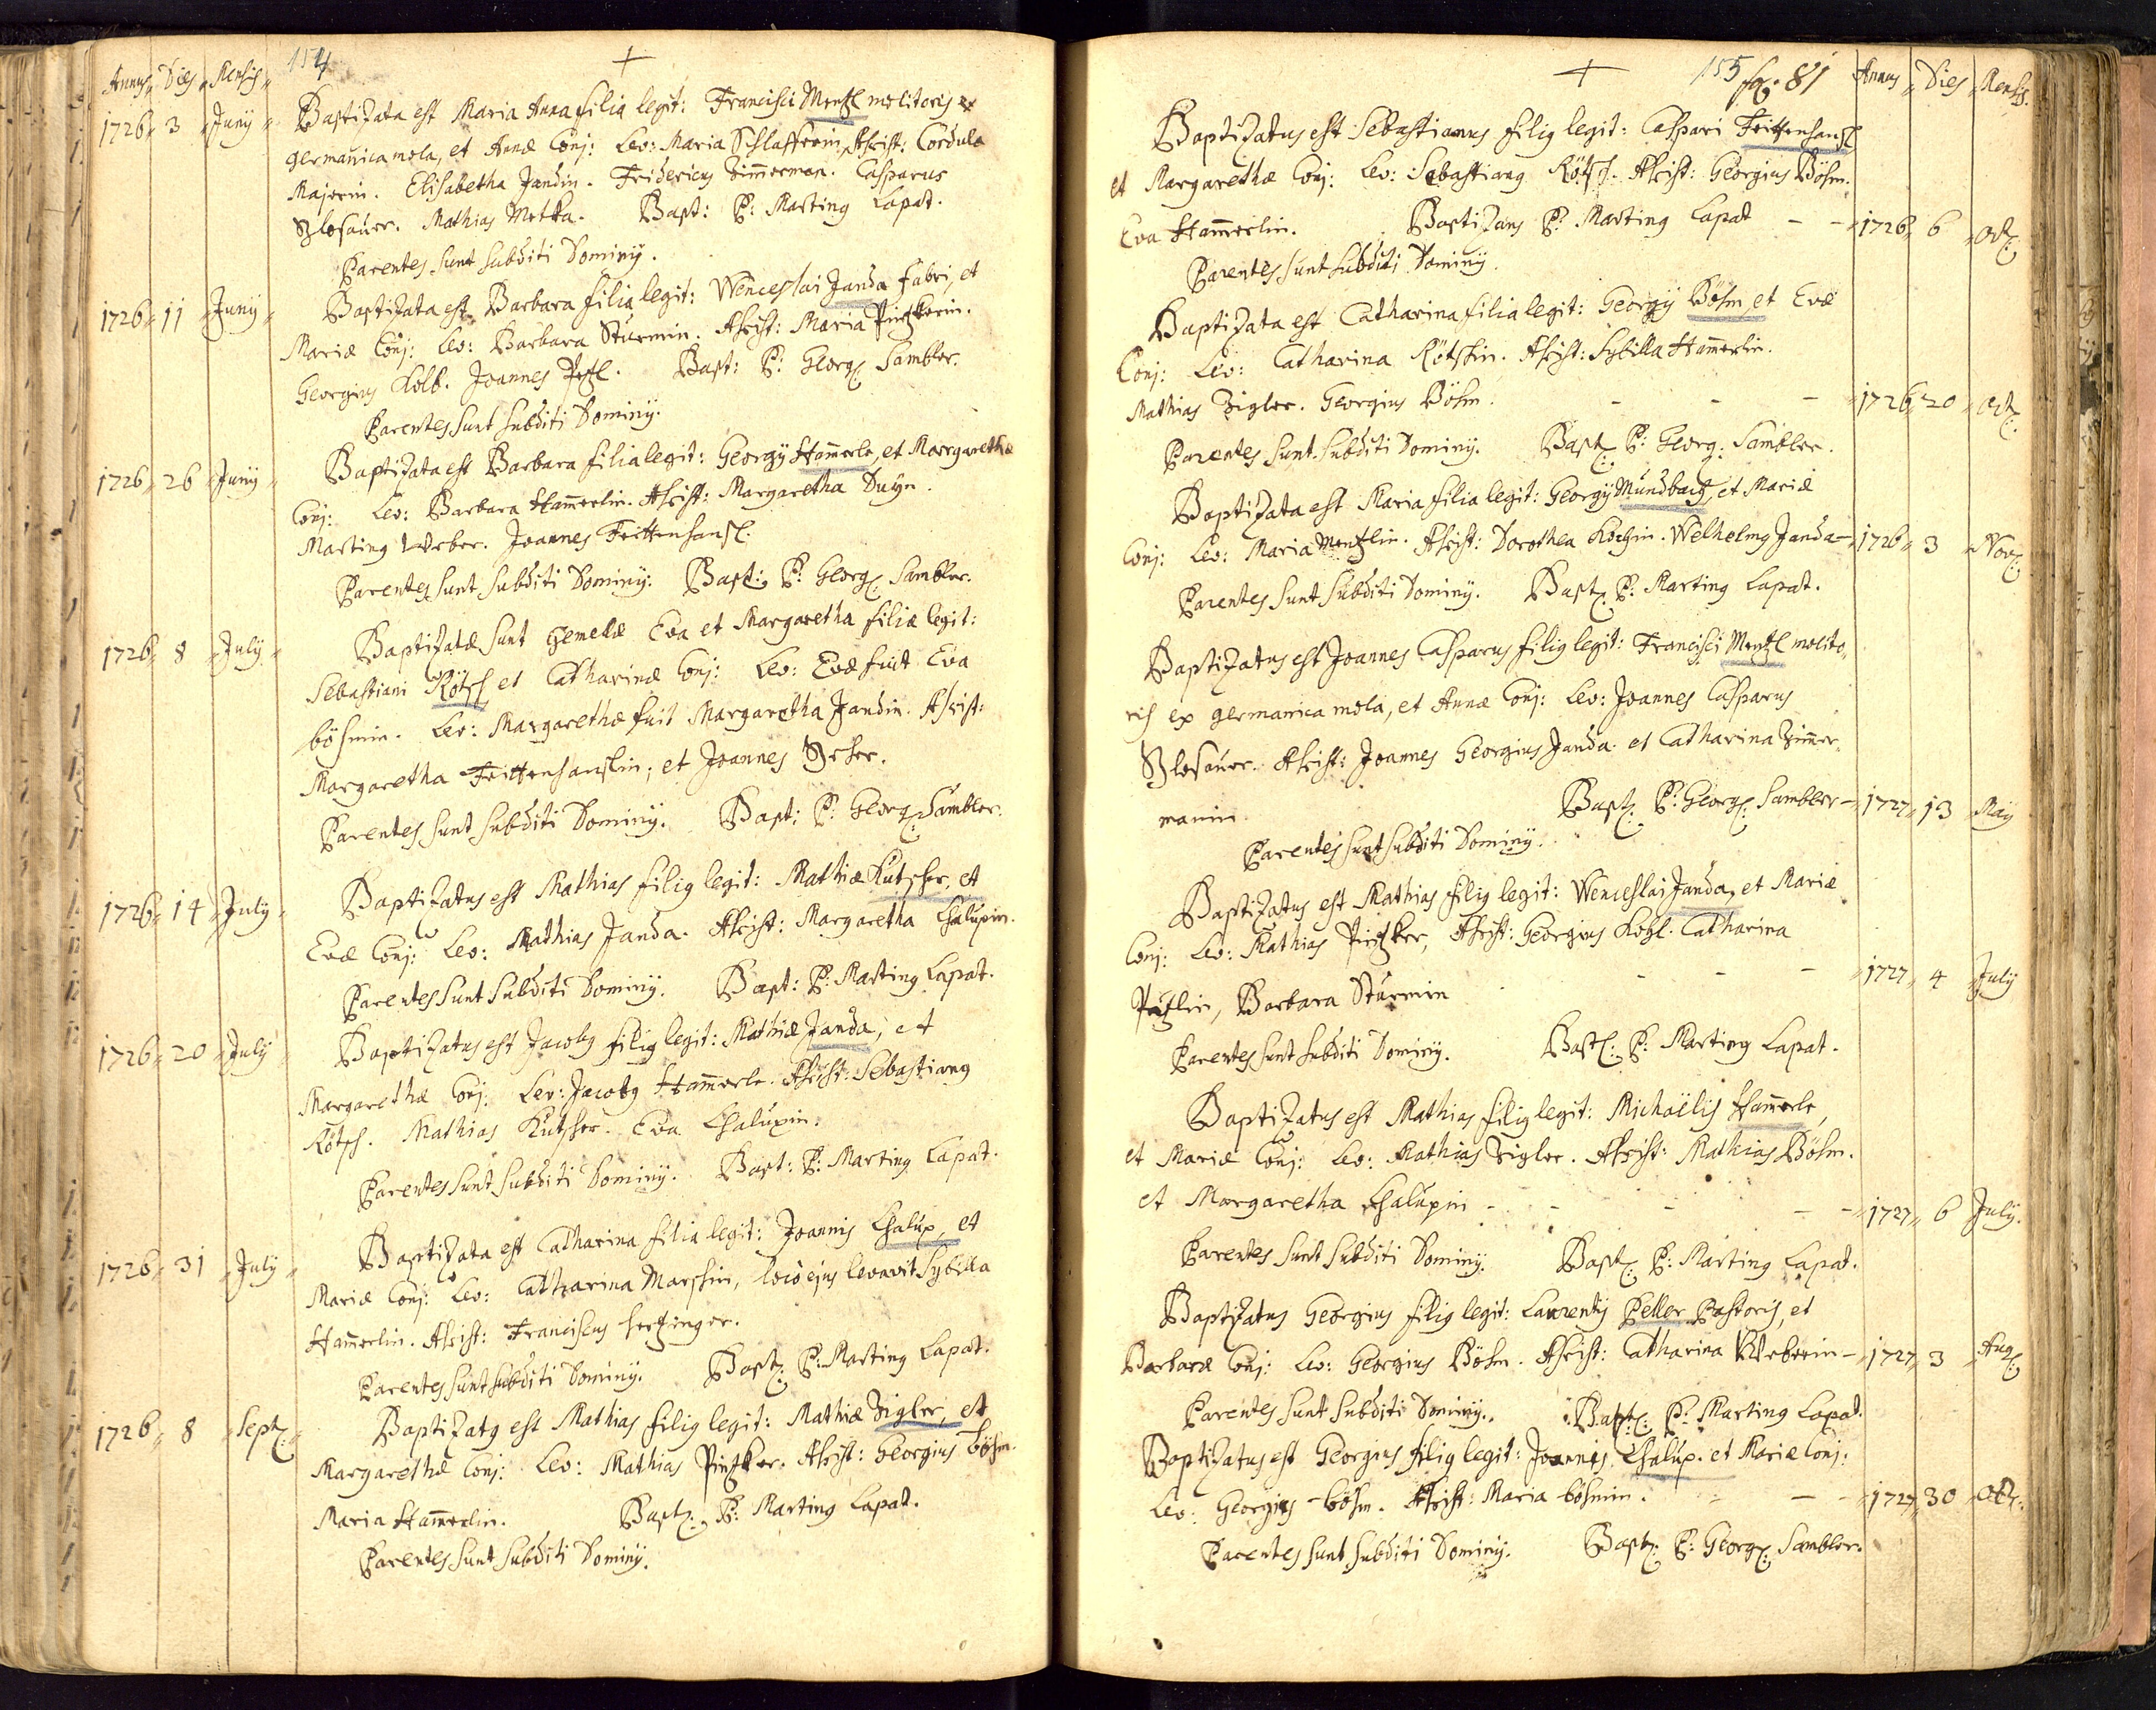 154
Annus Dies Mensis
1726 3 Juny Baptizata est Maria Anna filia legit: Francisci Mentzl molitoris ex
germanica mola, et Annæ Conj: Lev: Maria Schlafferin, Assist: Cordula
Majerin. Elisabetha Jandin. Fridericus Zimmerman. Casparus
Mathias Metka. Bapt: P: Martinus Lapat.
Parentes sunt subditi Dominij.
1726 11 Juny Baptizata est Barbara filia legit: Wenceslai Janda fabri, et
Mariæ Conj: Lev: Barbara Sturmin. Assist: Maria
Georgius Kolb. Joannes Bapt: P: Georg: Sambler.
Parentes sunt subditi Dominij.
1726 26 Juny Baptizata est Barbara filia legit: Georgij Hammerle, et Margarethæ
Conj: Lev: Barbara Hammerlin. Assist: Margaretha
Martinus Weber. Joannes Frittenhansl.
Parentes sunt subditi Dominij. Bapt: P: Georg: Sambler.
1726 8 July Baptizatæ sunt Gemelæ Eva et Margaretha filiæ legit:
Sebastiani Rötsch et Catharinæ Conj: Lev: Evæ fuit Eva
böhmin. Lev: Margarethæ fuit Margaretha Jandin. Assist:
Margaretha Frittenhanslin, et Joannes
Parentes sunt subditi Dominij. Bapt: P: Georg: Sambler.
1726 14 July Baptizatus est Mathias filius legit: Mathiæ Kutscher, et
Evæ Conj: Lev: Mathias Janda. Assist: Margaretha Chalupin.
Parentes sunt subditi Dominij. Bapt: P: Martinus Lapat.
1726 20 July Baptizatus est Jacobus filius legit: Mathiæ Janda, et
Margarethæ Conj: Lev: Jacobus Hammerle. Assist: Sebastianus
Rötsch. Mathias Kutscher. Eva Chalupin.
Parentes sunt subditi Dominij. Bapt: P: Martinus Lapat.
1726 31 July Baptizata est Catharina filia legit: Joannis Chalup, et
Mariæ Conj: Lev: Catharina Marschin, loco ejus levavit Sybilla
Hammerlin. Assist: Franciscus hertzinger.
Parentes sunt subditi Dominij. Bapt: P: Martinus Lapat.
1726 8 Sept: Baptizatus est Mathias filius legit: Mathiæ Zigler, et
Margarethæ Conj: Lev: Mathias Pintzker. Assist: Georgius böhm.
Maria Hammerlin. Bapt: P: Martinus Lapat.
Parentes sunt subditi Dominij.
155 81 Annus Dies Mensis
Baptizatus est Sebastianus filius legit: Caspari Frittenhansl
et Margarethæ Conj: Lev: Sebastianus Rötsch. Assist: Georgius Böhm.
Eva Hammerlin. Baptizans P: Martinus Lapat - - 1726 6 Oct:
Parentes sunt subditi Dominij.
Baptizata est Catharina filia legit: Georgij Böhm et Evæ
Conj: Lev: Catharina Rötschin. Assist: Sybilla Hammerlin.
Mathias Zigler. Georgius Böhm. - - - 1726 20 Oct:
Parentes sunt subditi Dominij. Bapt: P: Georg: Sambler.
Baptizata est Maria filia legit: Georgij Mundbach, et Mariæ
Conj: Lev: Maria Mentzlin. Assist: Dorothea Kochin. Welhelmus Janda - 1726 3 Nov:
Parentes sunt subditi Dominij. Bapt: P: Martinus Lapat.
Baptizatus est Joannes Casparus filius legit: Francisci Mentzl molito,,
ris ex germanica mola, et Annæ Conj: Lev: Joannes Casparus
Assist: Joannes Georgius Janda et Catharina Zimmer,,
manin. Bapt: P: Georg: Sambler - 1727 13 May
Parentes sunt subditi Dominij.
Baptizatus est Mathias filius legit: Wenceslai Janda, et Mariæ
Conj: Lev: Mathias Pintzker, Assist: Georgius Catharina
Barbara Sturmin - - - 1727 4 July
Parentes sunt subditi Dominij. Bapt: P: Martinus Lapat.
Baptizatus est Mathias filius legit: Michaëlis Hammerle,
et Mariæ Conj: Lev: Mathias Zigler. Assist: Mathias Böhm.
et Margaretha Chalupin - - - - - 1727 6 July.
Parentes sunt subditi Dominij. Bapt: P: Martinus Lapat.
Baptizatus Georgius filius legit: Laurentij Peller Pastoris, et
Barbaræ Conj: Lev: Georgius Böhm. Assist: Catharina Weberin - 1727 3 Aug:
Parentes sunt subditi Dominij. Bapt: P: Martinus Lapat.
Baptizatus est Georgius filius legit: Joannis Chalup. et Mariæ Conj:
Lev: Georgius böhm. Assist: Maria böhmin. - - - 1727 30 Oct:
Parentes sunt subditi Dominij. Bapt: P: Georg: Sambler.